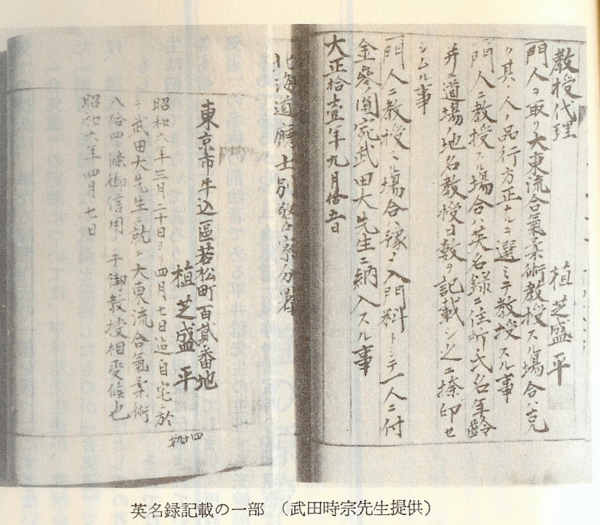 教授代理
植芝盛平
門人ヲ取リ大東流合氣柔術教授スル場合ハ克
ク其ノ人ノ品行方正ナルヲ選ミテ教授スル事
門人ニ教授スル場合ハ英名録ニ住所氏名年齢
并ニ道場ノ地名教授日数ヲ記載シ之ニ捺印セ
シムル事
門人ニ教授ノ場合ハ入門料トシテ一人ニ付
金参圓宛武田大先生ニ納入スル事
大正拾壹年九月拾五日
北海道廳士別警察分署
東京市牛込區若松町百貳番地
植芝盛平
昭和六年三月二十日ヨリ四月七日迠自宅ニ於
テ武田大先生ニ就キ大東流合氣柔術
八拾四ヶ條御信用之手御教授相受候也
昭和六年四月七日
英名録記載の一部 （武田時宗先生提供）